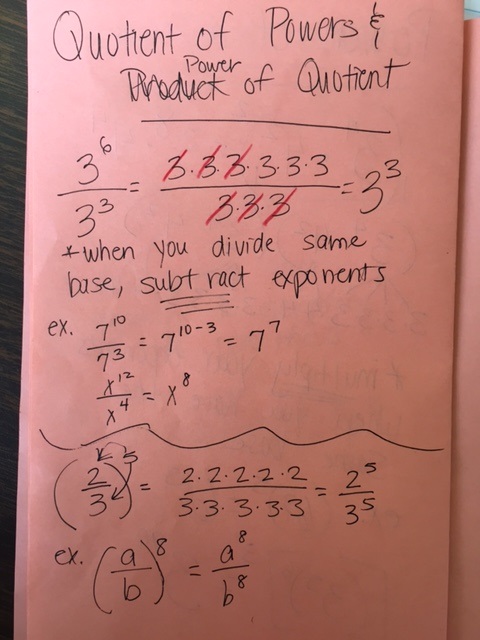 Quotient of Powers &
Power
Product of Quotient
3^6/3^3 = 3·3·3·3·3·3/3·3·3 = 3^3
*when you divide same
base, subtract exponents
ex. 7^10/7^3 = 7^10-3 = 7^7
x^12/x^4 = x^8
(2/3)^5 = 2·2·2·2·2/3·3·3·3·3 = 2^5/3^5
ex. (a/b)^8 = a^8/b^8